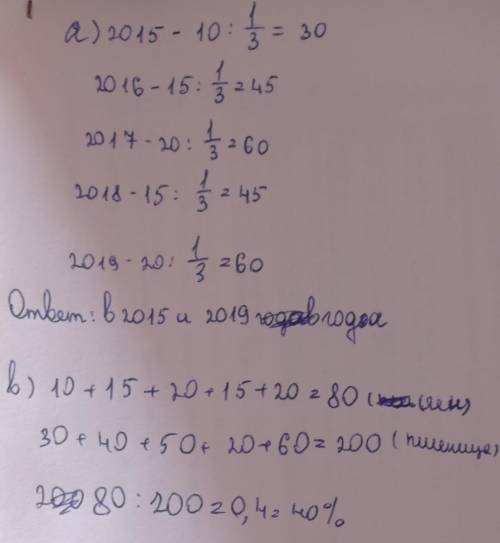 1
а) 2015 - 10 : 1/3 = 30
2016 - 15 : 1/3 = 45
2017 - 20 : 1/3 = 60
2018 - 15 : 1/3 = 45
2019 - 20 : 1/3 = 60
Ответ: в 2015 и 2019 года
в) 10 + 15 + 20 + 15 + 20 = 80 (
30 + 40 + 50 + 20 + 60 = 200 (пшеница)
80 : 200 = 0,4 = 40%